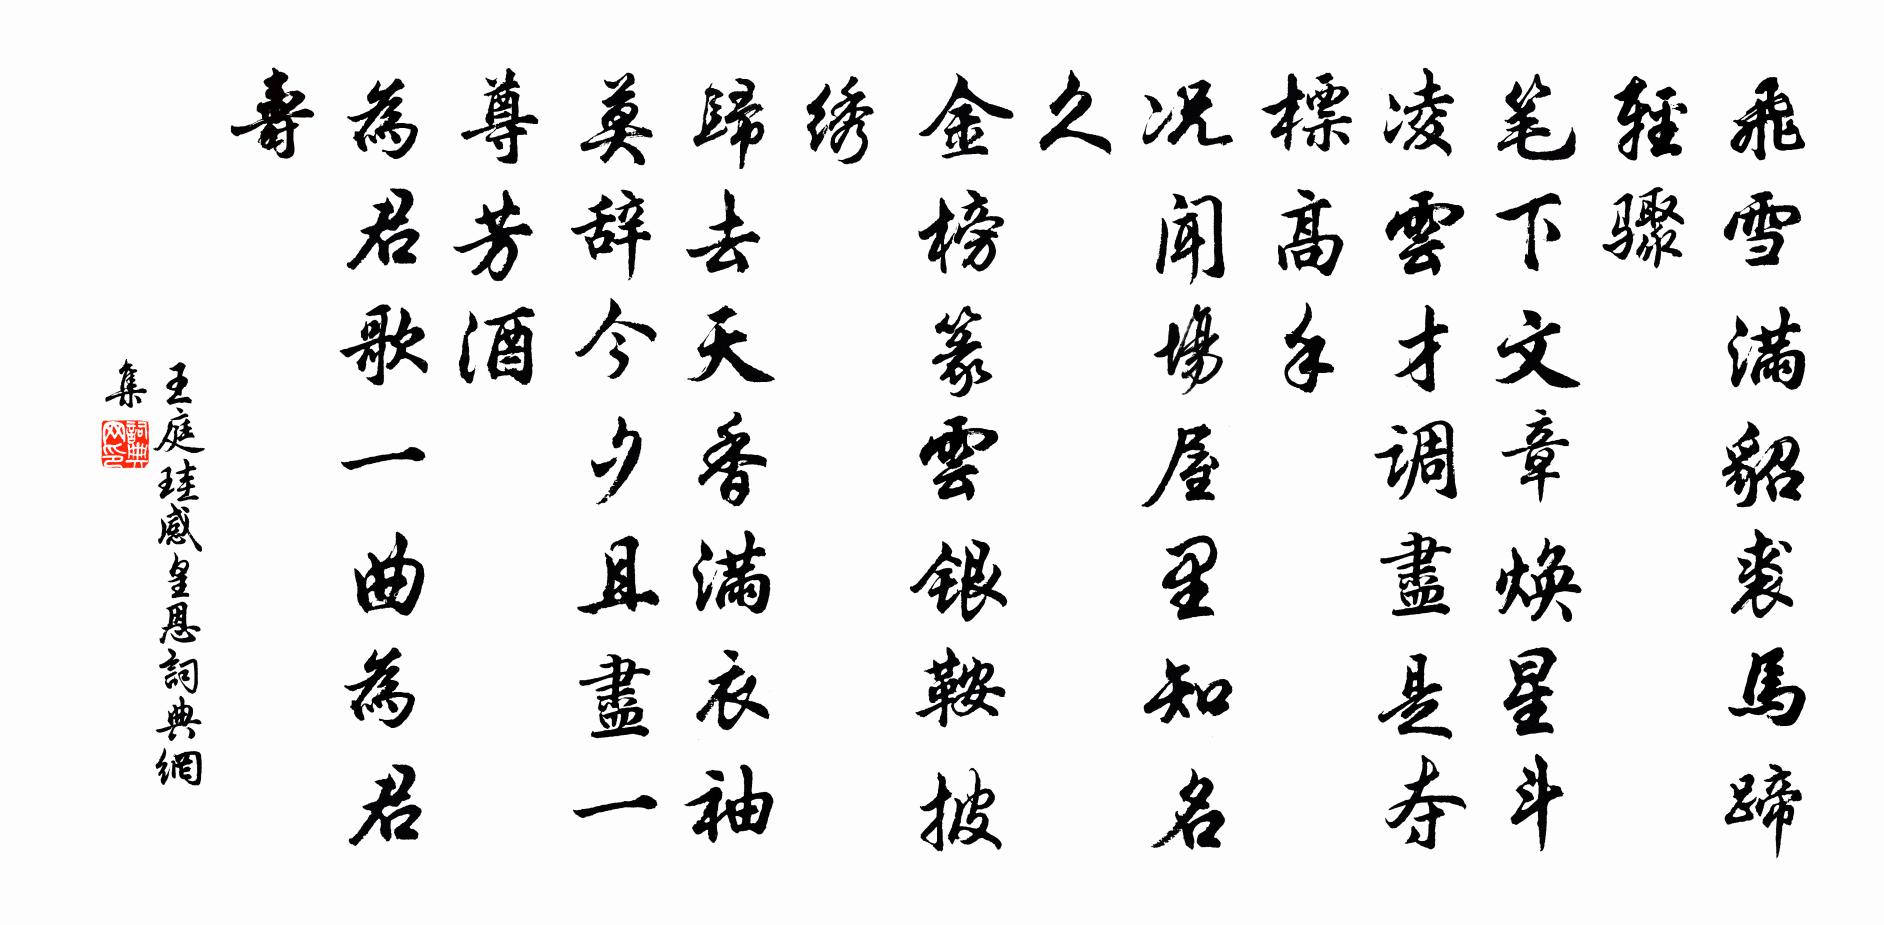 飛雪满貂裘馬蹄
輕驟
笔下文章焕星斗
凌雲才调盡是夺
標高手
况闻場屋里知名
久
金榜篆雲銀鞍披
绣
歸去天香满衣袖
莫辞今夕且盡一
尊芳酒
為君歌一曲為君
壽
王庭珪感皇恩詞典網
集
詞典
网印